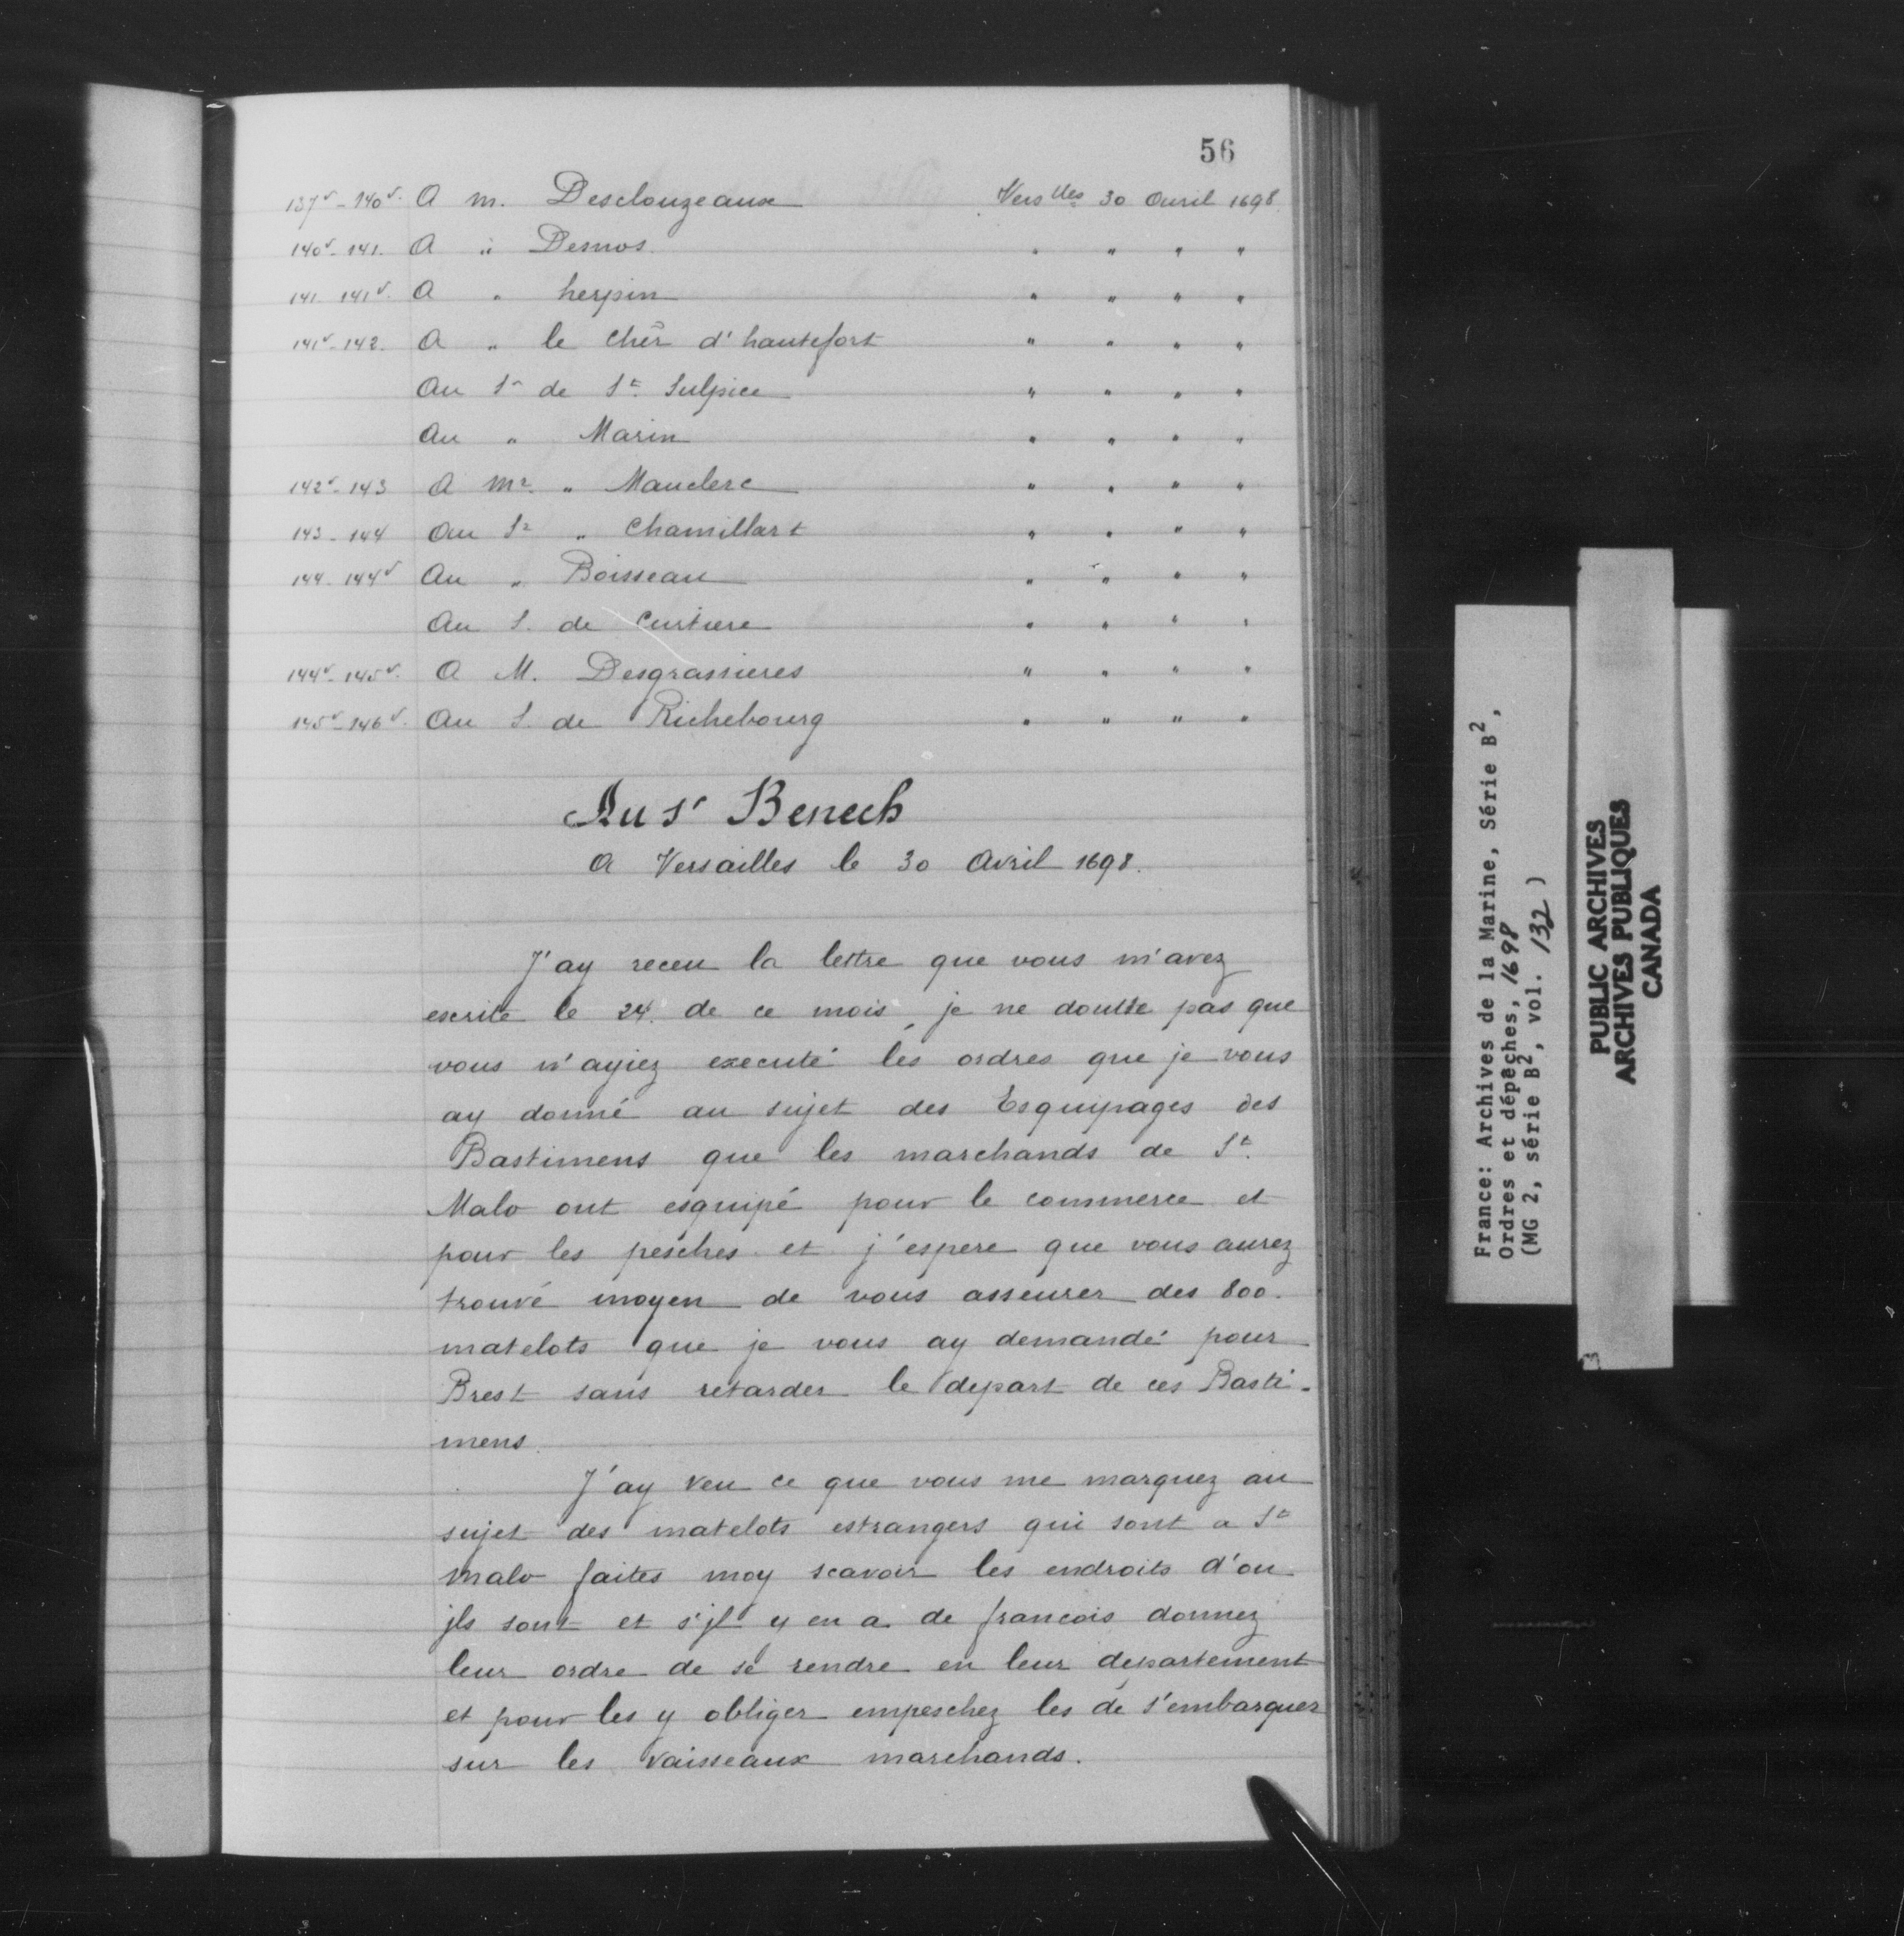 56
137v - 140v. A M. Desclouzeaux Verslles 30 Avril 1698.
140v - 141. A " Desnos. " " " "
141 - 141v. A " herpin " " " "
141v - 142. A " le cher d'hautefort " " " "
Au Sr de St. Sulpice " " " "
Au " Marin " " " "
142v - 143 A Mr. " Mauclerc " " " "
143 - 144 Au Sr " Chamillart " " " "
144 - 144v Au " Boisseau " " " "
Au S. de " " " "
144v - 145v. A M. Desgrassieres " " " "
145v - 146v. Au S. de Richebourg " " " "
Au Sr Benech
A Versailles le 30 Avril 1698.
J'ay receu la lettre que vous m'avez
escrite le 24. de ce mois, je ne doutte pas que
vous n'ayiez executé les ordres que je vous
ay donné au sujet des Esquipages des
Bastimens que les marchands de St.
Malo ont esquipé pour le commerce et
pour les pesches et j'espere que vous aurez
trouvé moyen de vous asseurer des 800.
matelots que je vous ay demandé pour
Brest sans retarder le depart de ces Basti-
mens.
J'ay veu ce que vous me marquez au
sujet des matelots estrangers qui sont a St
Malo faites moy scavoir les endroits d'ou
jls sont et s'jl y en a de francois donnez
leur ordre de se rendre en leur departement
et pour les y obliger empeschez les de s'embarquer
sur les vaisseaux marchands.
France: Archives de la Marine, Série B2,
Ordres et dépêches, 1698
(MG 2, série B2, vol. 132)
PUBLIC ARCHIVES
ARCHIVES PUBLIQUES
CANADA